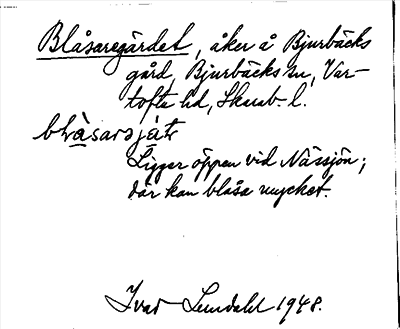 Blåsaregärdet, åker å Bjurbäcks
gård, Bjurbäcks sn, Var-
tofta hd, Skarab. l.
blåsarsjäṭ
Ligger öppen vid Nässjön;
där kan blåsa mycket.
Ivar Lundahl 1948.